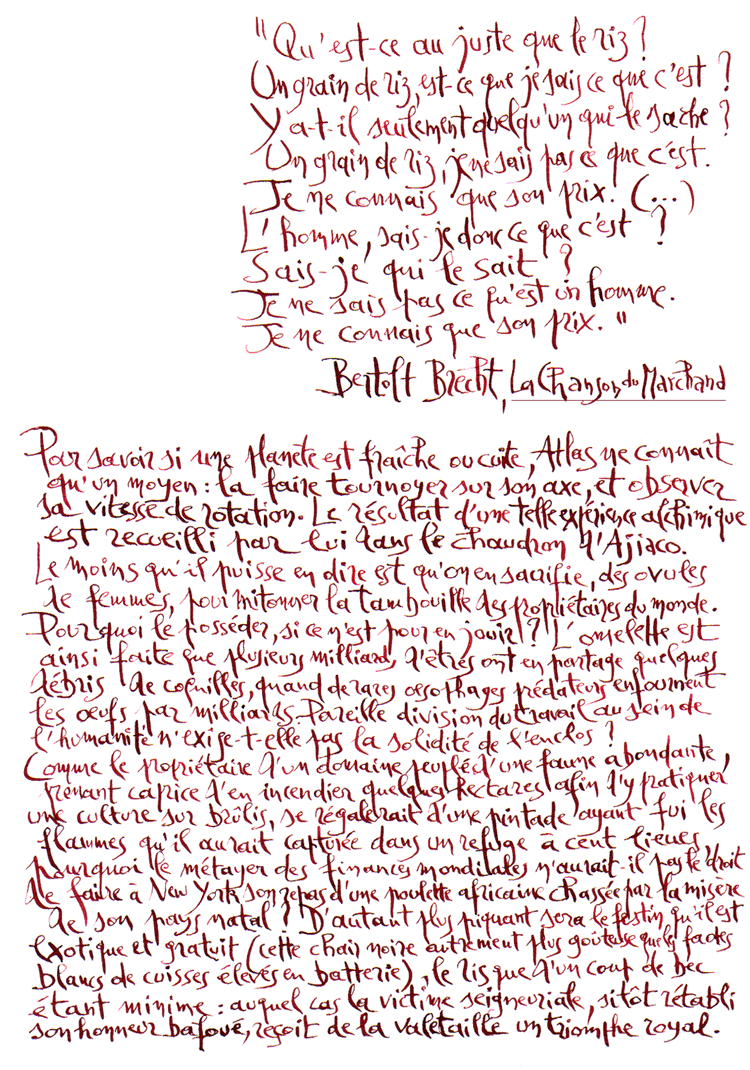 "Qu'est-ce au juste que le riz ?
Un grain de riz, est-ce que je sais ce que c'est ?
Y a-t-il seulement quelqu'un qui le sache ?
Un grain de riz, je ne sais pas ce que c'est.
Je ne connais que son prix. (...)
L'homme, sais-je donc ce que c'est ?
Sais-je qui le sait ?
Je ne sais pas ce qu'est un homme.
Je ne connais que son prix."
Bertolt Brecht, La Chanson du Marchand
Pour savoir si une planète est fraîche ou cuite, Atlas ne connaît
qu'un moyen : la faire tournoyer sur son axe, et observer
sa vitesse de rotation. Le résultat d'une telle expérience alchimique
est recueilli par lui dans le chaudron d'Ajiaco.
Le moins qu'il puisse en dire est qu'on en sacrifie, des ovules
de femmes, pour mitonner la tambouille des propriétaires du monde.
Pourquoi le posséder, si ce n'est pour en jouir ? L'omelette est
ainsi faite que plusieurs milliards d'êtres ont en partage quelques
débris de coquilles, quand de rares oesophages prédateurs enfournent
les oeufs par milliards. Pareille division du travail au sein de
l'humanité n'exige-t-elle pas la solidité de l'enclos ?
Comme le propriétaire d'un domaine peuplé d'une faune abondante,
prenant caprice d'en incendier quelques hectares afin d'y pratiquer
une culture sur brûlis, se régalerait d'une pintade ayant fui les
flammes qu'il aurait capturée dans un refuge à cent lieues,
pourquoi le métayer des finances mondiales n'aurait-il pas le droit
de faire à New York son repas d'une poulette africaine chassée par la misère
de son pays natal ? D'autant plus piquant sera le festin qu'il est
exotique et gratuit (cette chair noire autrement plus goûteuse que les fades
blancs de cuisses élevés en batterie), le risque d'un coup de bec
étant minime : auquel cas la victime seigneuriale, sitôt rétabli
son honneur bafoué, reçoit de la valetaille un triomphe royal.